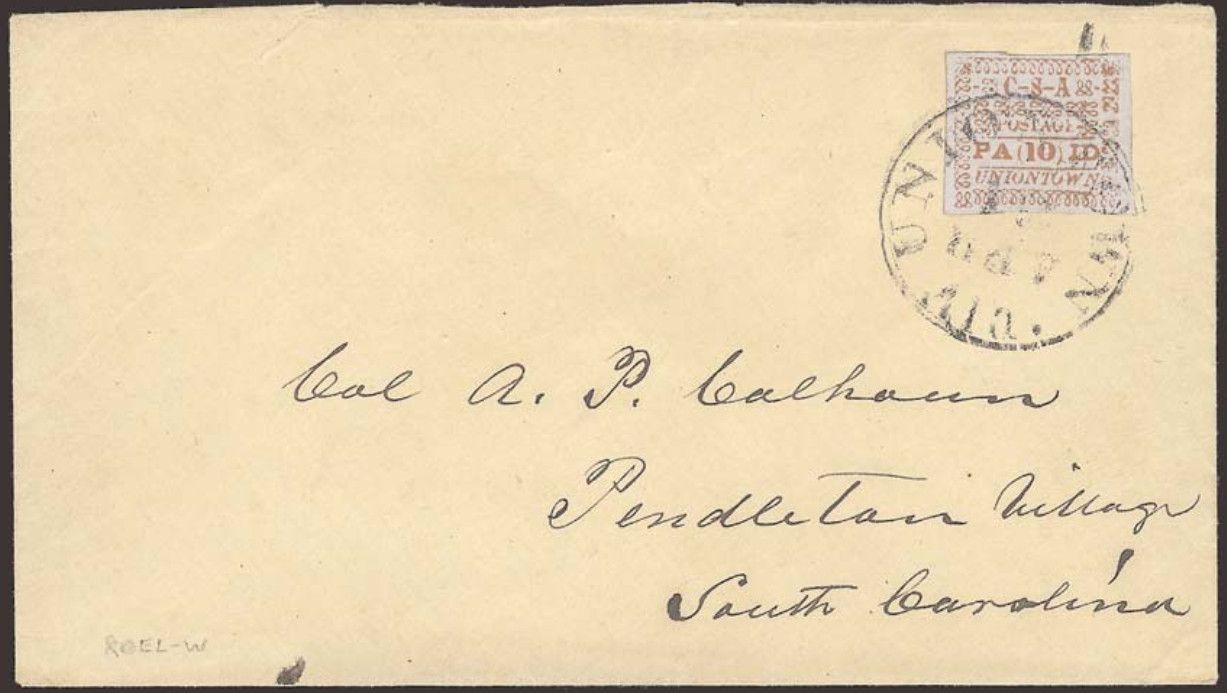 C-S-A
POSTAGE
PA (10) ID
UNIONTOWN
UNIONTOWN
Col A. P. Calhoun
Pendleton Village
South Carolina